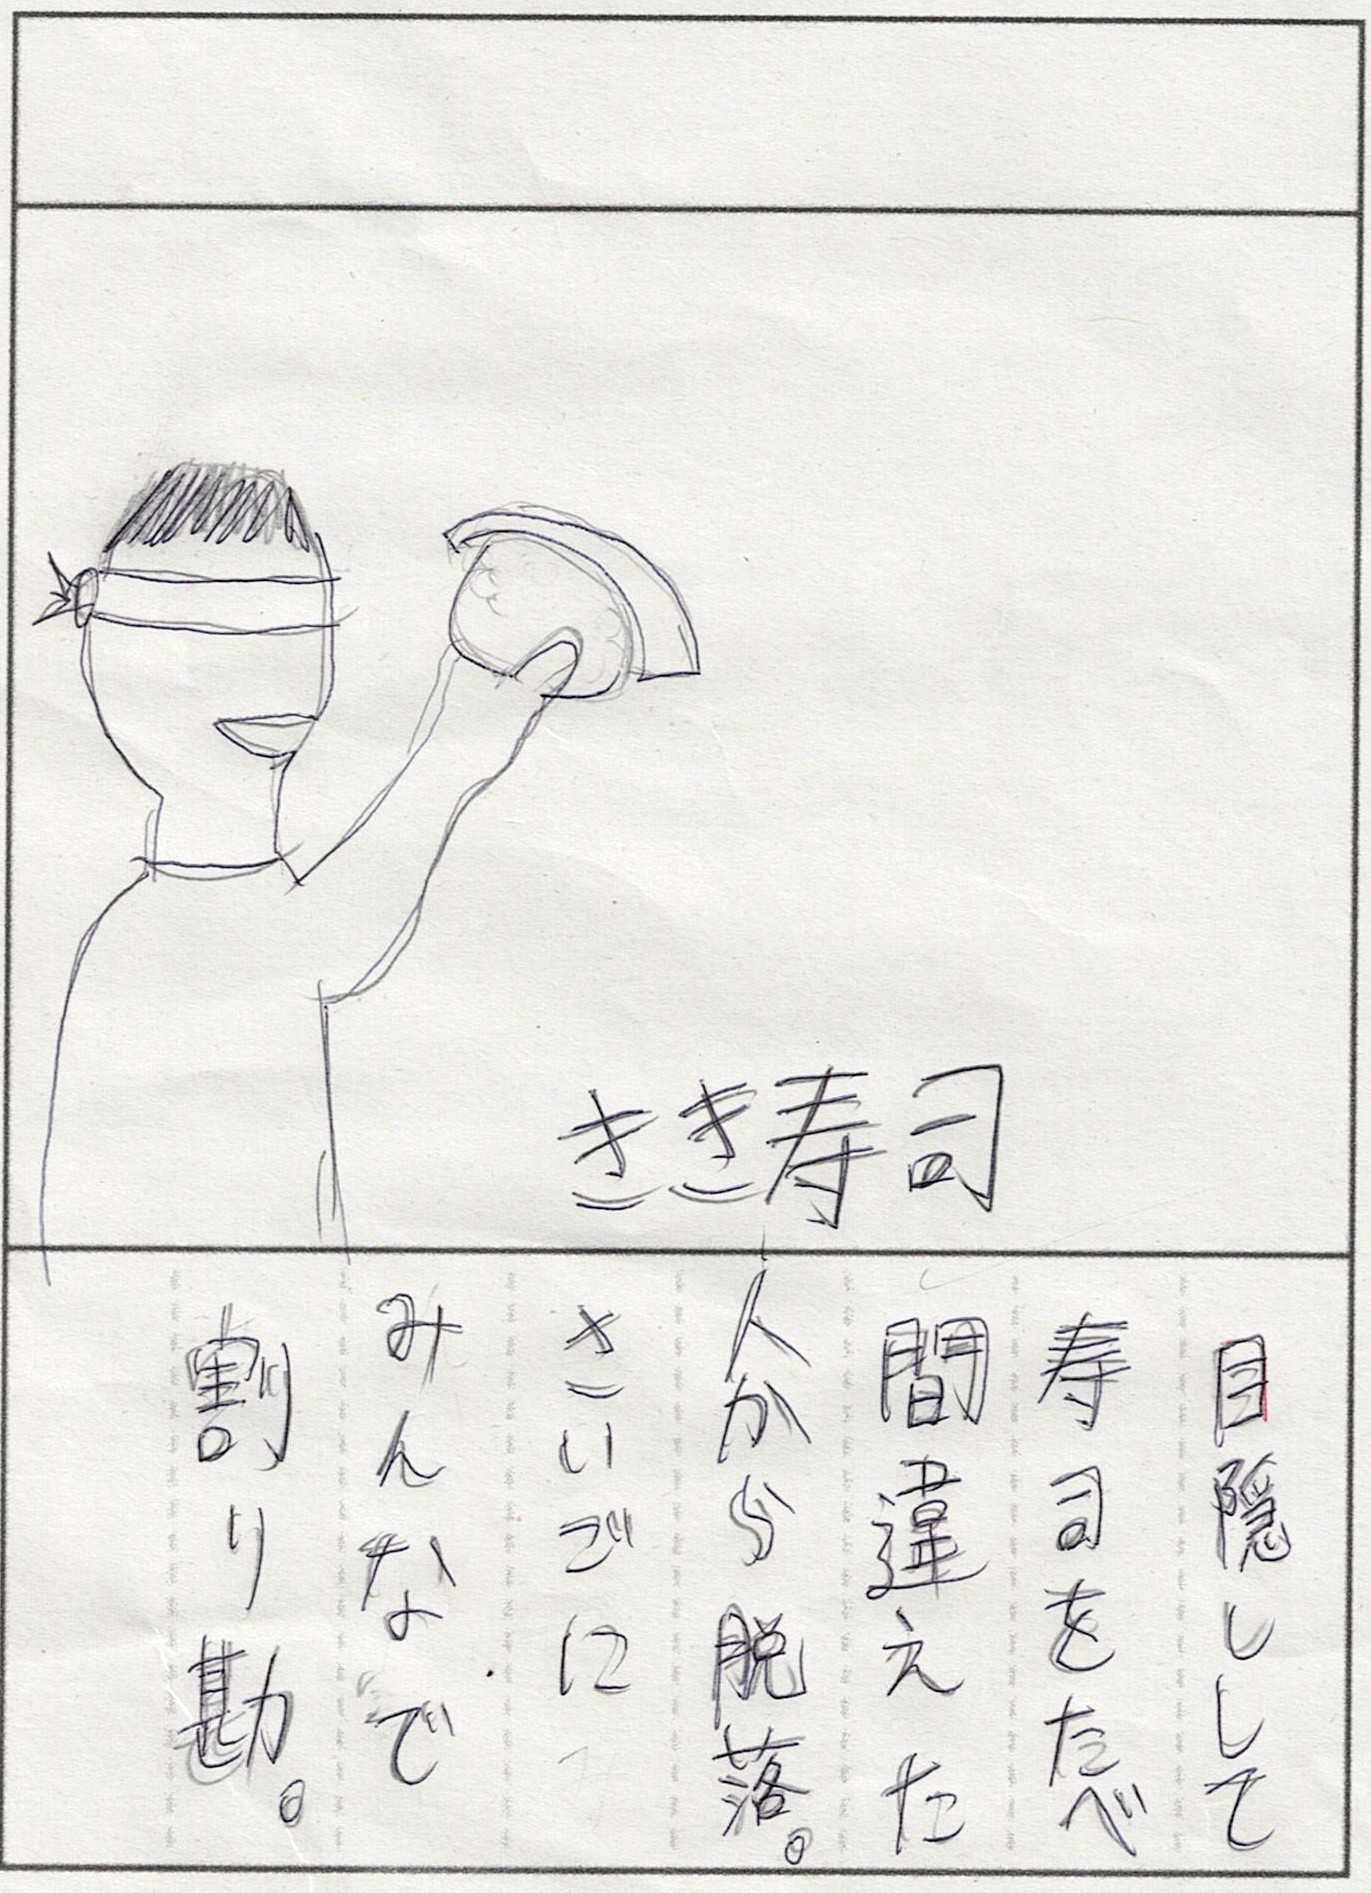 きき寿司
目隠しして
寿司をたべ
間違えた
人から脱落。
さいごに
みんなで
割り勘。